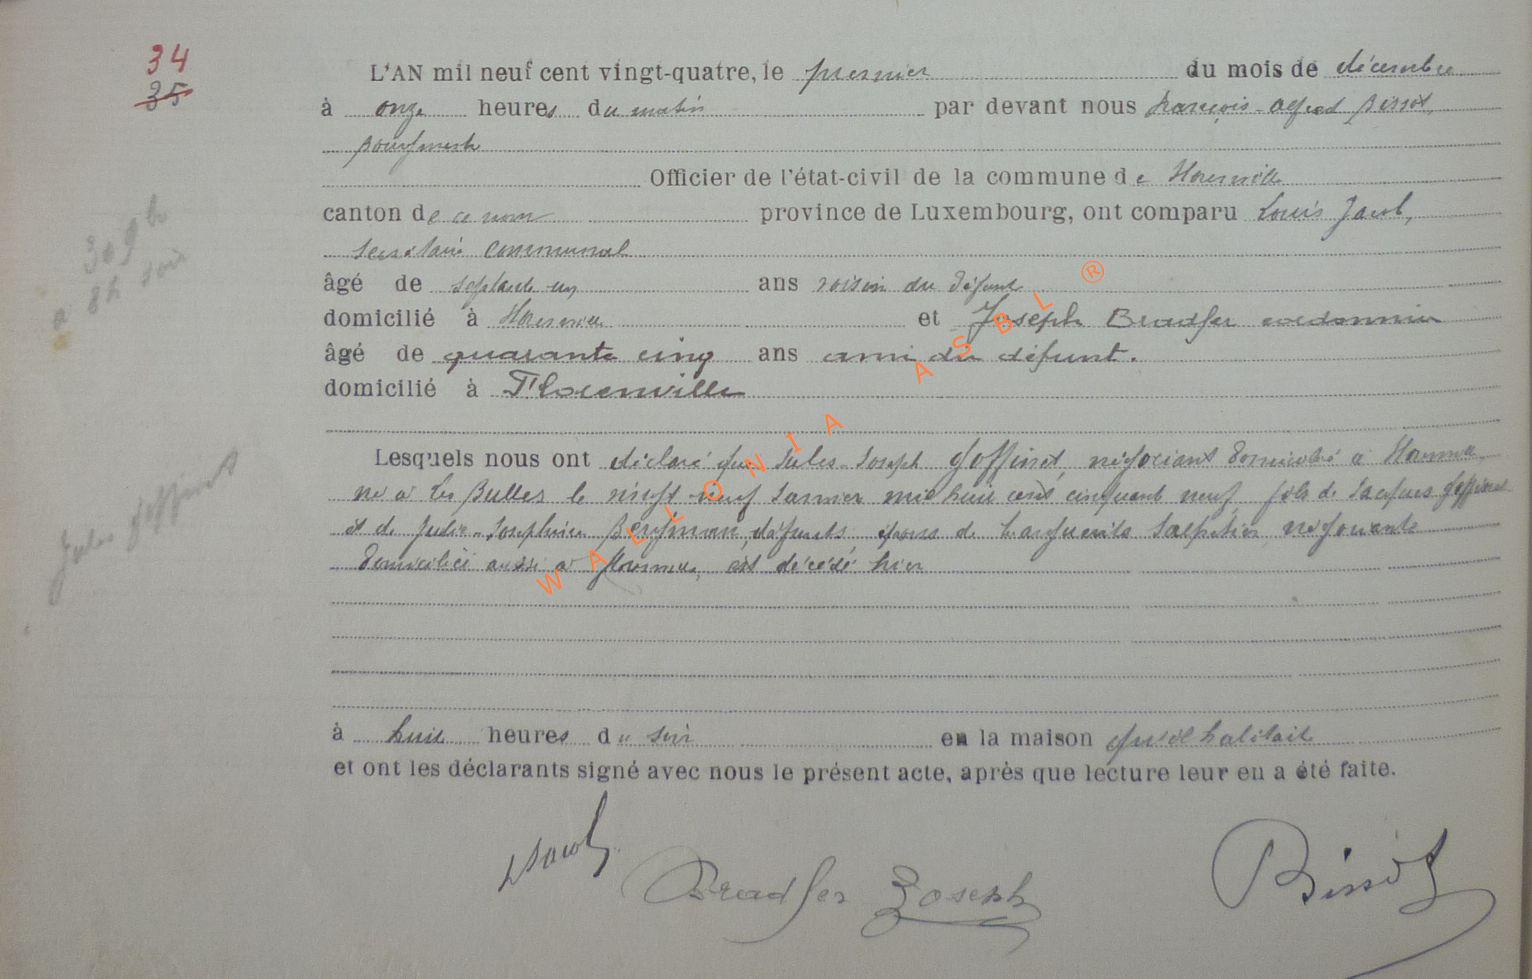 34
35
L'AN mil neuf cent vingt-quatre, le premier du mois de décembre
à onze heures du matin par devant nous françois-alfred Bissot,
Bourgmestre
Officier de l'état-civil de la commune de Florenville
canton de ce nom province de Luxembourg, ont comparu Louis Jacob,
secrétaire communal
30 9b
à 8h soir
âgé de septante un ans voisin du défunt
domicilié à Florenville et Joseph Bradfer cordonnier
âgé de quarante cinq ans ami du défunt.
domicilié à Florenville
Jules Goffinet
Lesquels nous ont déclaré que Jules-Joseph Goffinet, négociant domicilié à Florenville
né à Les Bulles le vingt neuf janvier mil huit cent cinquante neuf fils de Jacques Goffinet
et de Joséphine défunts époux de Marguerite négociante
domiciliée aussi à Florenville, est décédé hier
à huit heures du soir en la maison qu'il habitait
et ont les déclarants signé avec nous le présent acte, après que lecture leur en a été faite.
LJacob
Bradfer Joseph
Bissot
WALLONIA ASBL ®